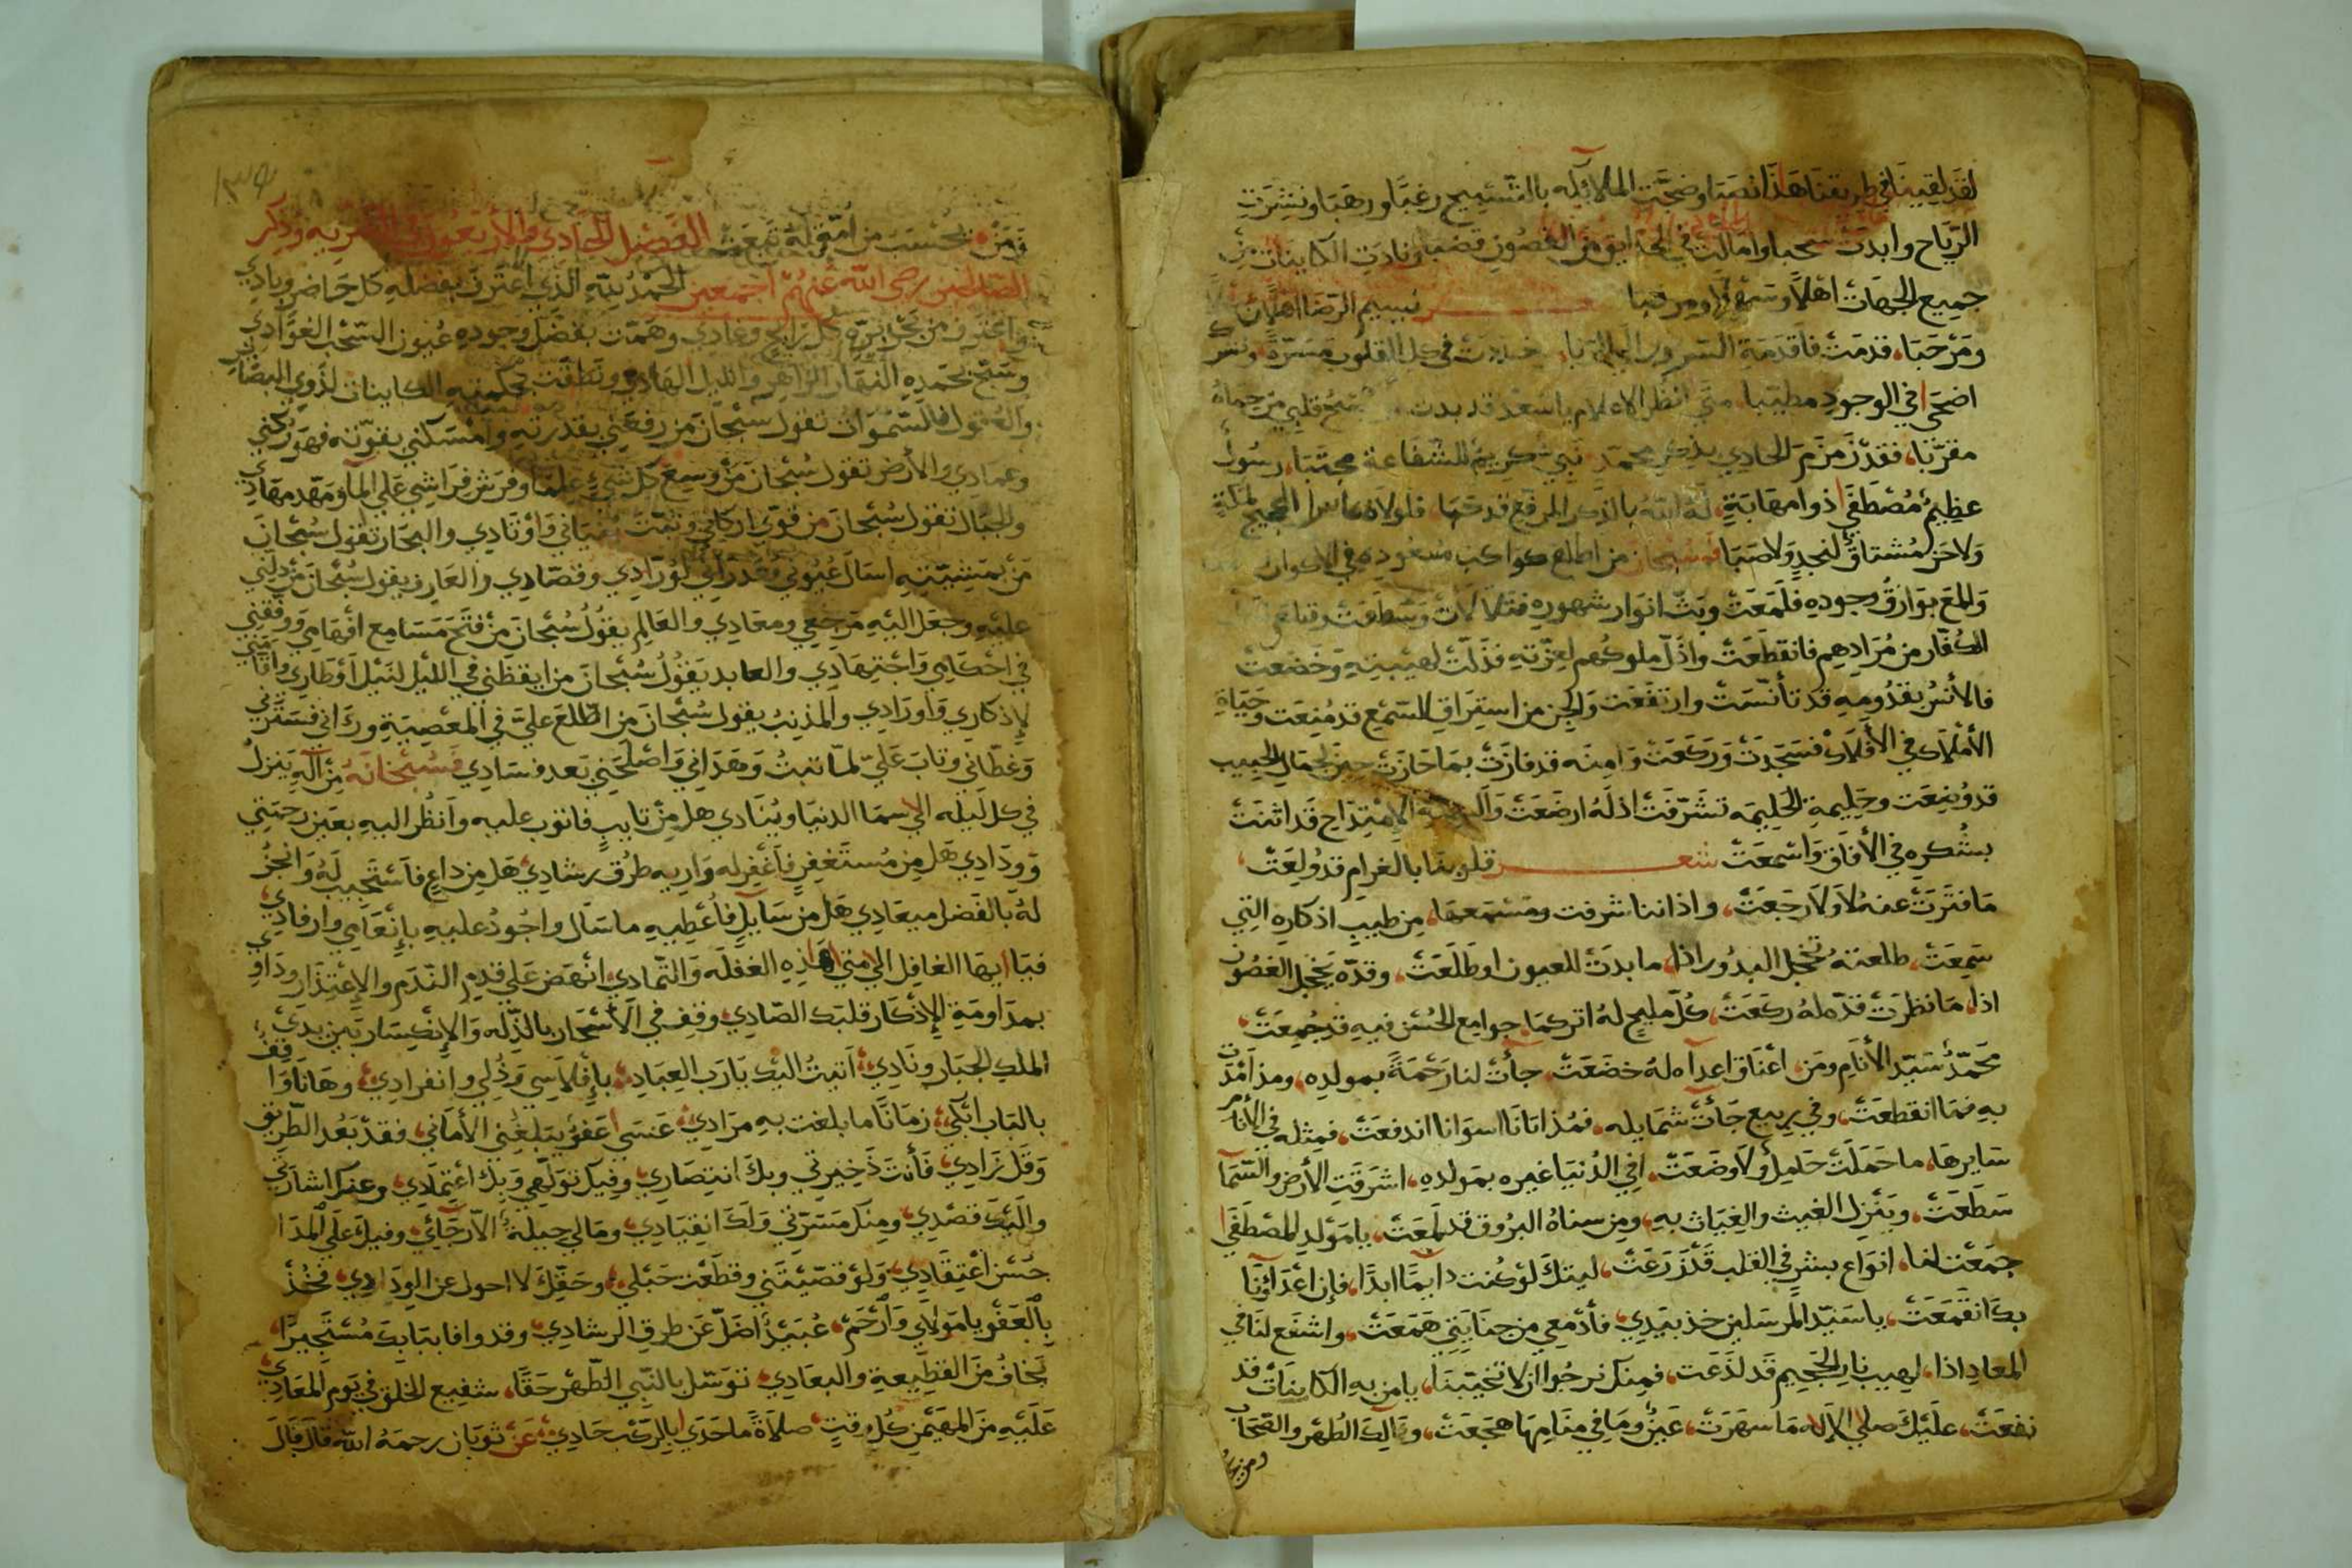 لقد لقينا في طريقنا هذا نصبا وضجت الملائكه بالتسبيح رغبا ورهبا ونشرت
الرياح وابدت سحبا وامالت في الحدايق من الغصون قضبا ونادت الكاينات من
جميع الجهات اهلا وسهلا ومرحبا نسيم الرضا اهلا
ومرحبا، قدمت فاقدمة السرور في كل القلوب مسرة ونشرك
اضحى في الوجود مطيبا، متى انظر الاعلام يا سعد قد بدت قلبي من حماه
مقربا، فقد زمزم الحادي بذكر محمد نبي كريم للشفاعة مجتبا، رسول
عظيم مصطفى ذوا مهابة، له الله بالذكر المرفع قد حبا، فلولاه ما سرا الحجيج لمكة
ولا حن مشتاق لنجد ولا صبا فسبحان من اطلع كواكب سعوده في الاكوان
والمع بوارق وجوده فلمعت وبث انوار شهوده فتلالات وسطعت وقطع
الكفار من مرادهم فانقطعت واذل ملوكهم لعزته فذلت لهيبته وخضعت
فالأنس بقدومه قد تأنست وارتفعت والجن من استراق للسمع قد منعت وحياة
الأملاك في الأفلاك فسجدت وركعت وامنه قد فازت بما حازت حين لجمال الحبيب
قد وضعت وحليمة الحليمه تشرفت اذ له ارضعت والسنة الامتداح قد اثنت
بشكره في الأفاق واسمعت شعر قلوبنا بالغرام قد ولعت،
ما فترت عنه لا ولا رجعت، واذاننا شرفت ومسمعها، من طيب اذكاره التي
سمعت، طلعته تخجل البدور اذا، ما بدت للعيون او طلعت، وقده يخجل الغصون
اذا، ما نظرت قده له ركعت، كل مليح له اتركما، جوامع الحسن فيه قد جمعت،
محمد سيد الأنام ومن، اعناق اعداه له خضعت، جأت لنا رحمة بمولده، ومذ امدت
به فما انقطعت، وفي ربيع جأت شمايله، فمذ اتانا اسوانا اندفعت، فمثله في الأنام
سايرها، ما حملت حامل ولا وضعت، في الدنيا غيره بمولده، اشرقت الأرض والسما
سطعت، وينزل الغيث والغياث به، ومن سناه البروق قد لمعت، يا مولد المصطفى
جمعت لنا، انواع بشر في القلب قد زرعت، ليتك لو كنت دايما ابدا، فإن اعداؤنا
بك انقمعت، يا سيد المرسلين خذ بيدي، فأدمعي من جنايتي همعت، واشفع لنا في
المعاد اذا، لهيب نار الجحيم قد لذعت، فمنك نرجوا ان لا تخيبنا، يا من به الكاينات قد
نفعت، عليك صلى الإله ما سهرت، عين وما في منامها هجعت، وآلك الطهر والصحاب
ومن بحـ
ومن بحسب من امتي له تبعت الفصل الحادي والأربعون في وذكر
الصالحين رضي الله عنهم اجمعين الحمد لله الذي اعترف بفضله كل حاضر وبادي
واغترف من بحر بره كل رايح وغادي وهمت بفضل وجوده عيون السحب الغوادي
وسبح بحمده النهار الزاهر والليل الهادي ونطقت بحكمته الكاينات لذوي البصاير
والعقول فالسموات تقول سبحان من رفعني بقدرته وامسكني بقوته فهو ركني
وعمادي والأرض تقول سبحان من وسع كل شيء علما وفرش فراشي على الما ومهد مهادي
والجبال تقول سبحان من قوى اركاني وثبت بنياني وأوتادي والبحار تقول سبحان
من بمشيئته اسال عيوني وقدرني لورادي وقصادي والعارف يقول سبحان من دلني
عليه وجعل اليه مرجعي ومعادي والعالم يقول سبحان من فتح مسامع افهامي ووفقني
في احكامي واجتهادي والعابد يقول سبحان من ايقظني في الليل لنيل أوطاري واقامني
لإذكاري وأورادي والمذنب يقول سبحان من اطلع علي في المعصية ورآني فسترني
وغطاني وتاب علي لما تبت وهداني واصلحني بعد فسادي فسبحانه من آله ينزل
في كل ليله الي سما الدنيا وينادي هل من تايب فاتوب عليه وأنظر اليه بعين رحمتي
وودادي هل من مستغفر فأغفر له واريه طرق رشادي هل من داع فأستجيب له وانجز
له بالفضل ميعادي هل من سايل فأعطيه ما سال واجود عليه بإنعامي وارفادي
فيا ايها الغافل الي متي هذه الغفله والتمادي، انهض على قدم الندم والإعتذار وداوي
بمداومة الإذكار قلبك الصادي، وقف في الأسحار بالذله والإنكسار بين يدي
الملك الجبار ونادي، اتيت اليك يا رب العباد، بإفلاسي وذلي وانفرادي، وها انا واقف
بالباب ابكي، زمانا ما بلغت به مرادي، عسى عفو يبلغني الأماني، فقد بعد الطريق
وقل زادي، فأنت ذخيرتي وبك انتصاري، وفيك تولهي وبك اعتمادي، وعنك اشارتي
واليك قصدي، ومنك مسرتي ولك انقيادي، ومالي حيلة، الا رجائي، وفيك على المدا
حسن اعتقادي، ولو قصيتني وقطعت حبلي، وحقك لا احول عن الودادي، فخذ
بالعفو يا مولاي وارحم، عبيد اضل عن طرق الرشادي، وقد وافا ببابك مستجيرا،
يخاف من القطيعة والبعادي، توسل بالنبي الطهر حقا، شفيع الخلق في يوم المعادي،
عليه من المهيمن كل وقت، صلاة ما حدي بالركب حادي، عن ثوبان رحمه الله قال قال